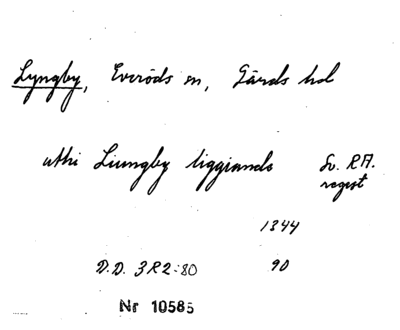 Lyngby, Everöds sn, Gärds hd
uthi Liungby liggiande Sv. RA.
regist
1344
D.D. 3R2:80 90
Nr 10585